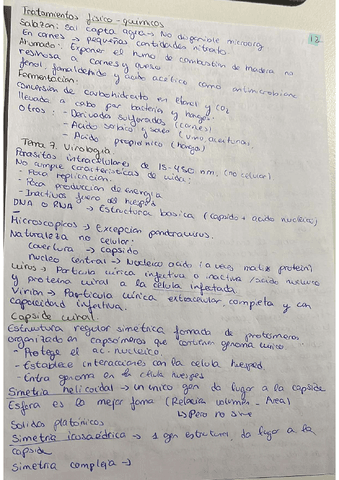 12
Tratamientos físico-químicos
Salazón: Sal capta agua → No disponible microorg.
En carnes → pequeñas cantidades nitrato
Ahumado: Exponer el humo de combustión de madera no
resinosa a carnes y queso
fenol, formaldehído y ácido acético como antimicrobiano
Fermentación
Conversión de carbohidrato en etanol y CO2
llevada a cabo por bacterias y hongos.
Otros: - Derivados sulfurados (carnes)
- Ácido y (vino, aceitunas)
- Ácido propiónico (hongos)
Tema 7. Virología
Parásitos intracelulares de 15-450 nm. (no celular)
No cumple características de vida:
- Poca replicación.
- Poca producción de energía
- Inactivos fuera del huésped
DNA o RNA → Estructura básica (cápsido + ácido nucleico)
Microscópicos → Excepción pandoravirus.
Naturaleza no celular:
covertura → cápsido
Nucleo central → Nucleico acido (a veces matriz protein)
Virus → Partícula vírica infectiva o inactiva /ácido nucleico
y proteína viral a la célula infectada
Virion → Partícula vírica extracelular completa y con
capacidad infectiva.
Cápside viral
Estructura regular simétrica formada de protómeros
organizado en capsómeros que contienen genoma vírico.
- Protege el ac. nucleico.
- Establece interacciones con la célula huésped
- Entra genoma en la célula huésped
Simetria helicoidal → un único gen da lugar a la cápside
Esfera es la mejor forma (Relación volumen - Área)
↳ Pero no
Sólidos platónicos
Simetría icosaédrica → 1 gen estructural da lugar a la
cápside
Simetría compleja →